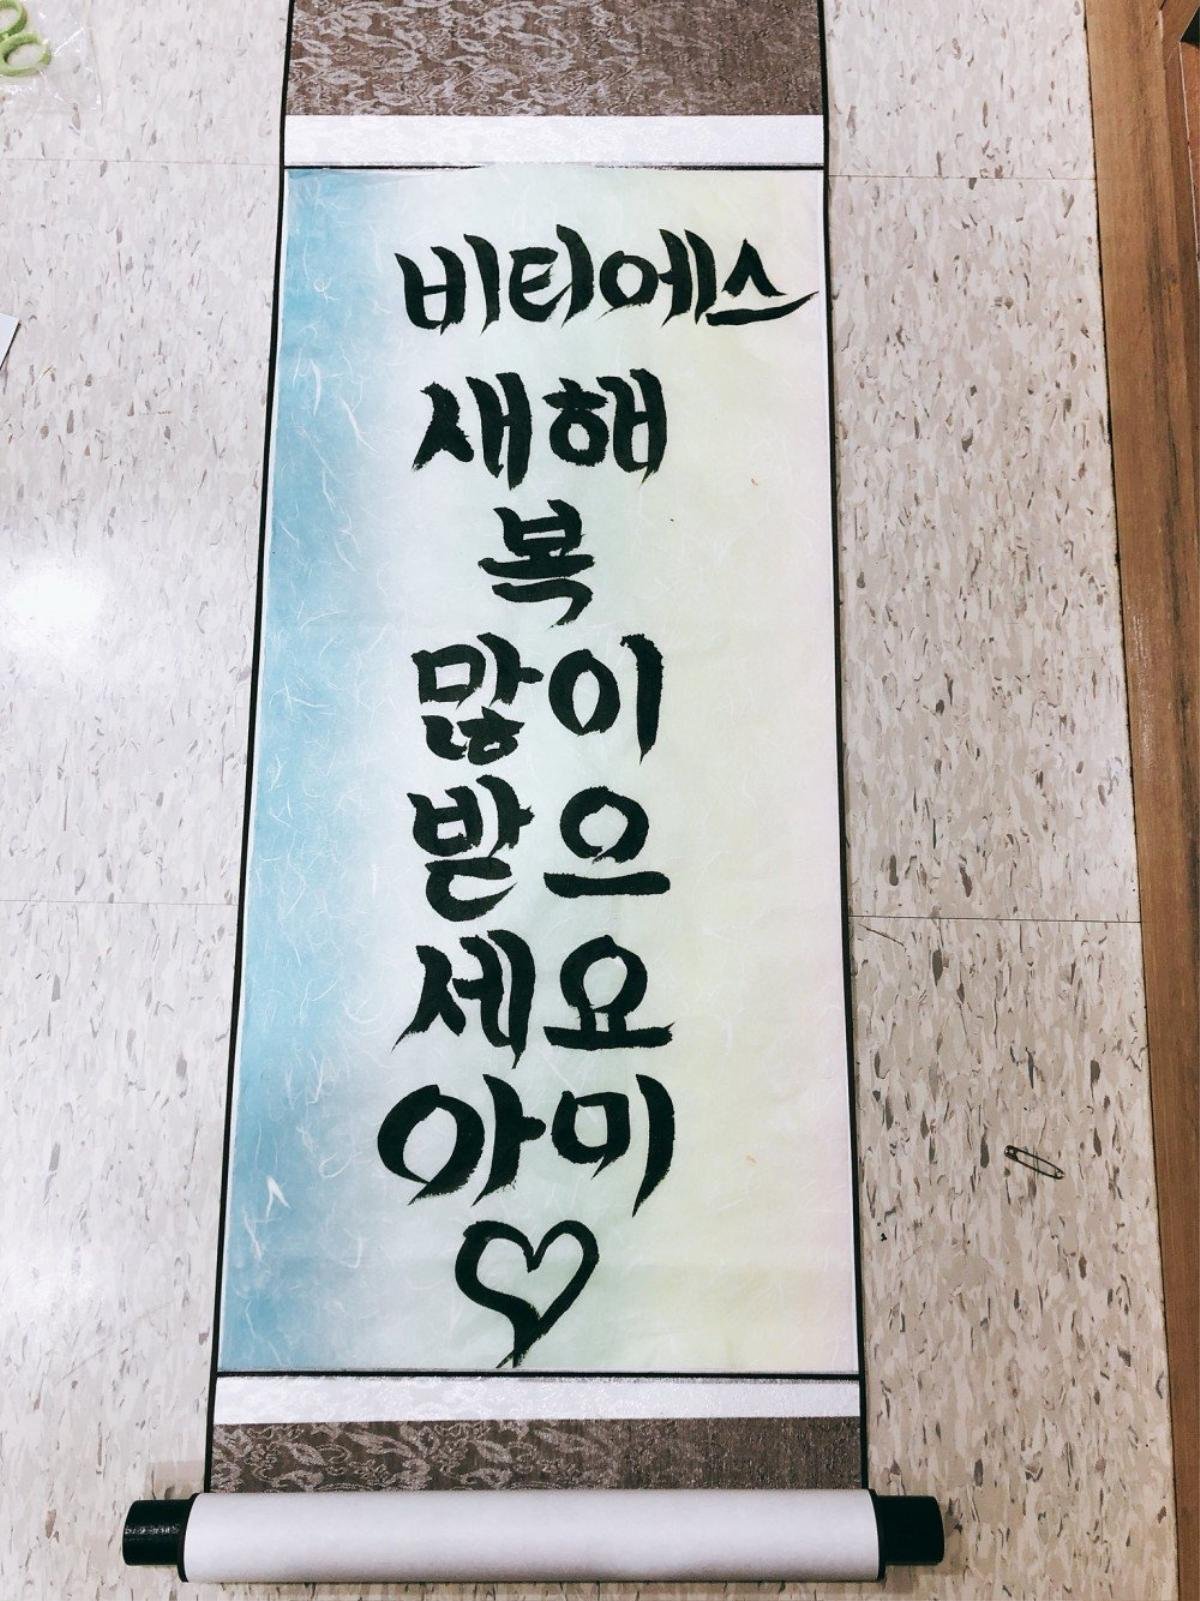 비티에스
새해
복
많이
받으
세요
아미